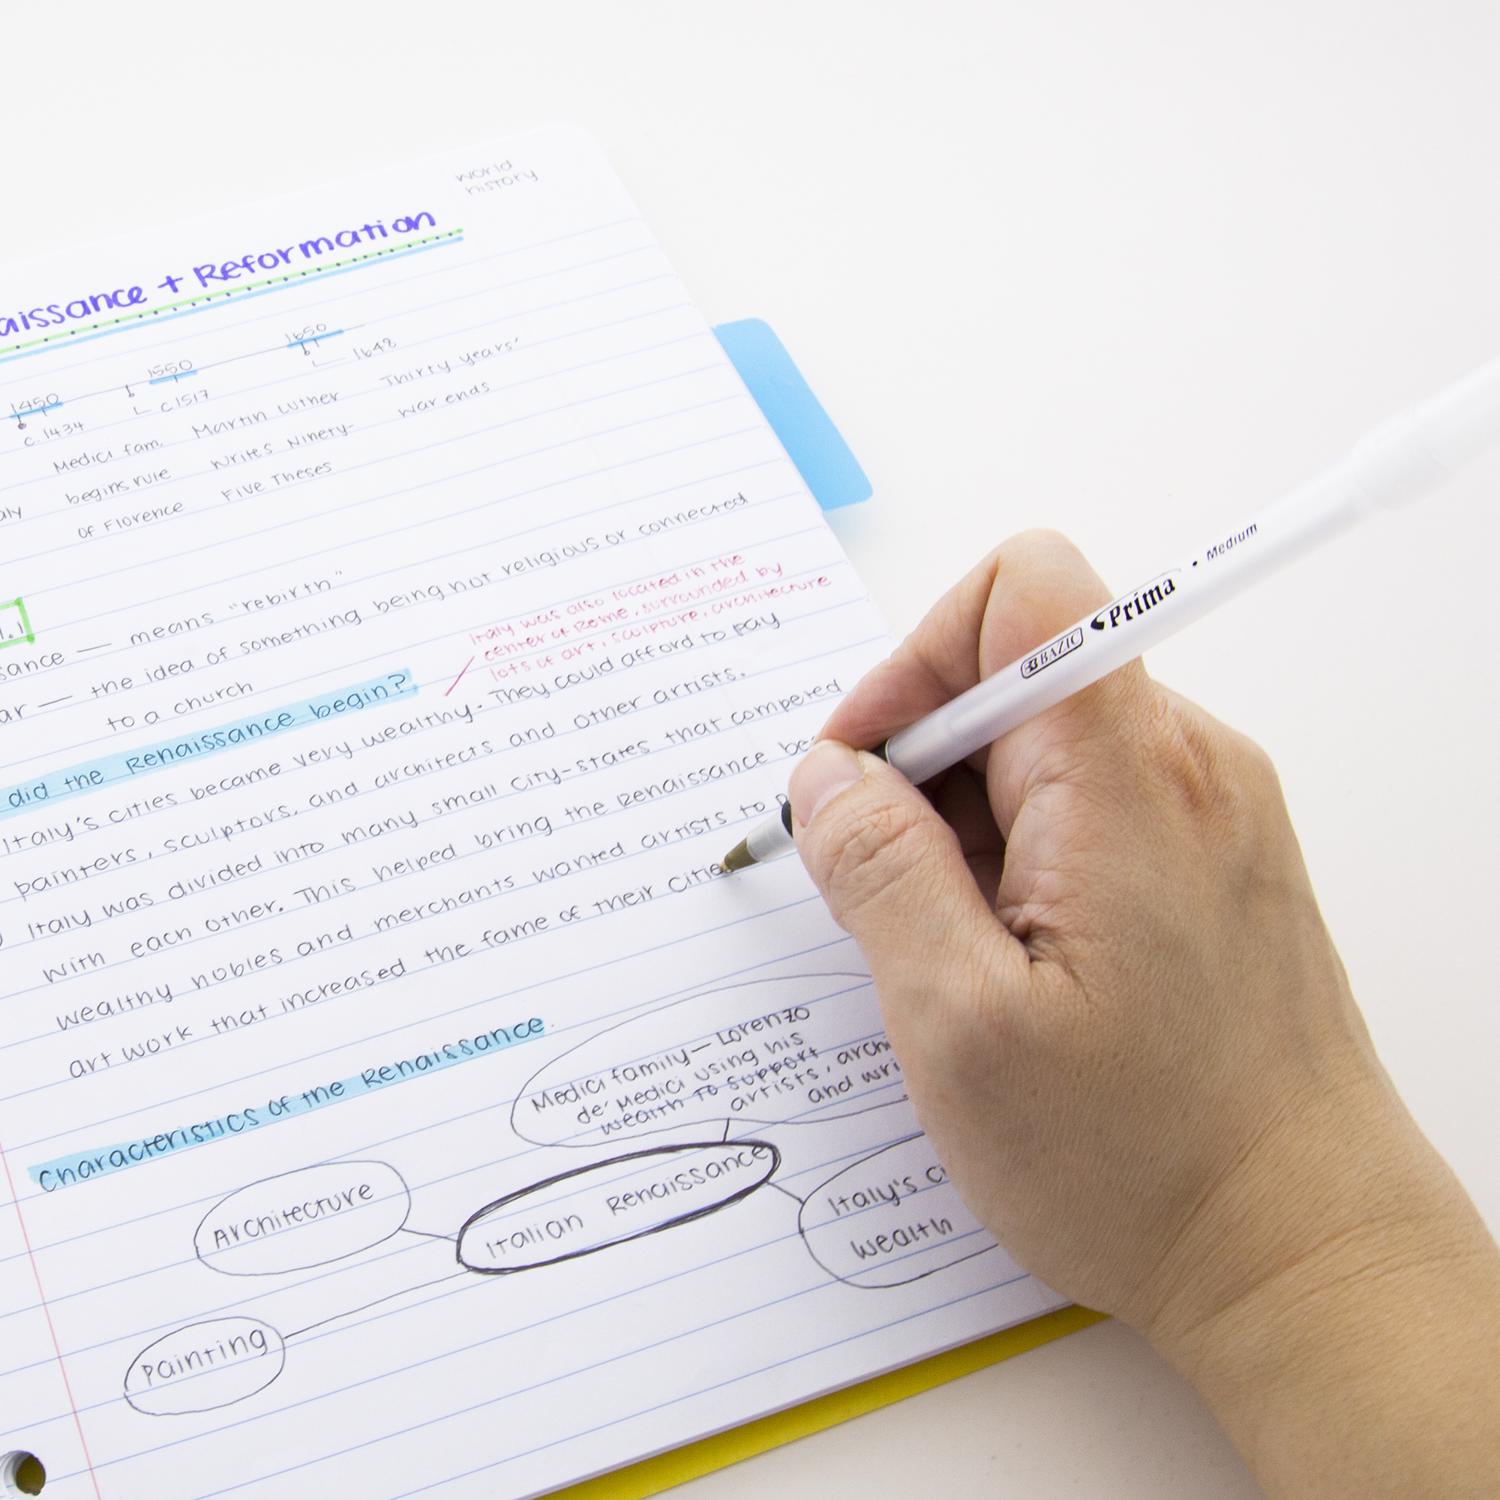 world
history
aissance + Reformation
1450 1550 1650
c. 1434 c 1517 1648
Medici fam. Martin Luther Thirty Years'
begins rule writes Ninety- war ends
of Florence Five Theses
1.1
sance — means "rebirth"
ar — the idea of something being not religious or connected
to a church
Italy was also located in the
center of Rome, surrounded by
lots of art, sculpture, architecture
did the Renaissance begin?
Italy's cities became very wealthy. They could afford to pay
painters, sculptors, and architects and other artists.
Italy was divided into many small city-states that competed
with each other. This helped bring the Renaissance bec
wealthy nobles and merchants wanted artists to p
art work that increased the fame of their citie
Characteristics of the Renaissance
Medici family — Lorenzo
de' Medici using his
wealth to support
artists, archi
and wri
Italian Renaissance
Architecture
Italy's ci
wealth
Painting
BAZIC Prima • Medium